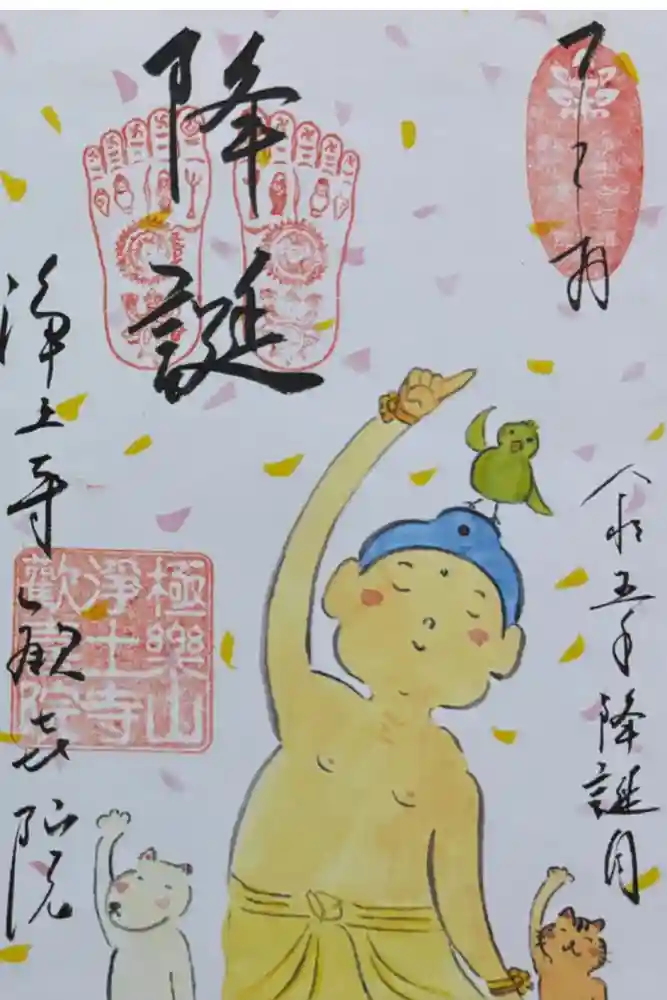 令和五年降誕月
降誕
浄土寺歓喜院
極樂山
淨土寺
歡喜院